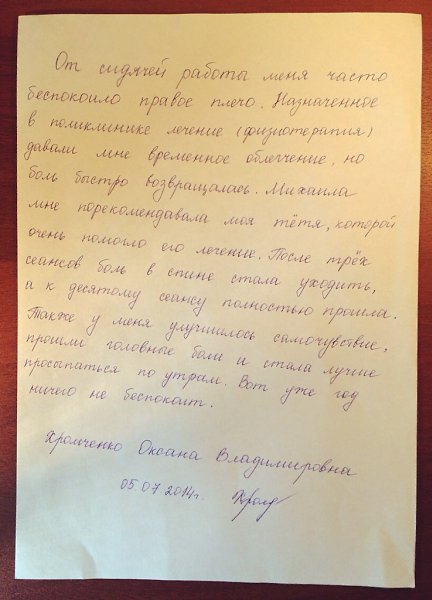 От сидячей работы меня часто
беспокоило правое плечо. Назначенное
в поликлинике лечение (физиотерапия)
давали мне временное облегчение, но
боль быстро возвращалась. Михаила
мне порекомендавала моя тётя, которой
очень помогло его лечение. После трёх
сеансов боль в спине стала уходить,
а к десятому сеансу полностью прошла.
Также у меня улучшилось самочувствие,
прошли головные боли и стала лучше
просыпаться по утрам. Вот уже год
ничего не беспокоит.
Хромченко Оксана Владимировна
05.07.2014г.